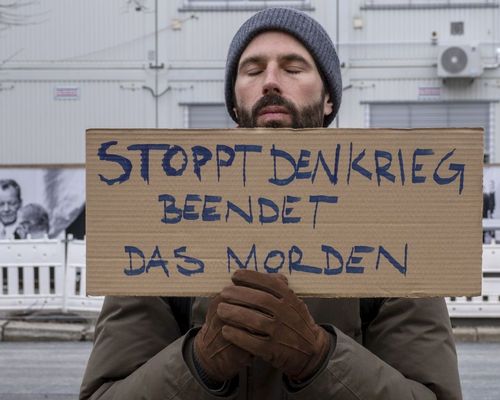 STOPPT DEN KRIEG
BEENDET
DAS MORDEN